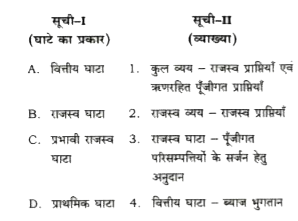 सूची–I सूची–II
(घाटे का प्रकार) (व्याख्या)
A. वित्तीय घाटा 1. कुल व्यय – राजस्व प्राप्तियाँ एवं
ऋणरहित पूँजीगत प्राप्तियाँ
B. राजस्व घाटा 2. राजस्व व्यय – राजस्व प्राप्तियाँ
C. प्रभावी राजस्व 3. राजस्व घाटा – पूँजीगत
घाटा परिसम्पत्तियों के सर्जन हेतु
अनुदान
D. प्राथमिक घाटा 4. वित्तीय घाटा – ब्याज भुगतान